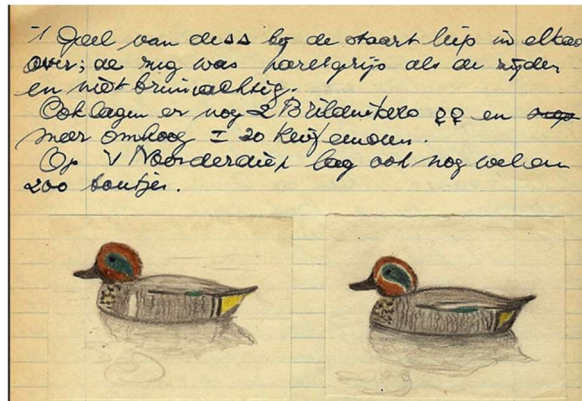 't Geel van dess bij de staart liep in elkaa
over; de rug was parelgrijs als de zijden
en niet bruinachtig.
Ook lagen er nog 2 Brilduikers ♀♀ en
meer omhoog ± 20 Kuifeenden.
Op 't Noorderdiep lag ook nog wel een
200 tal